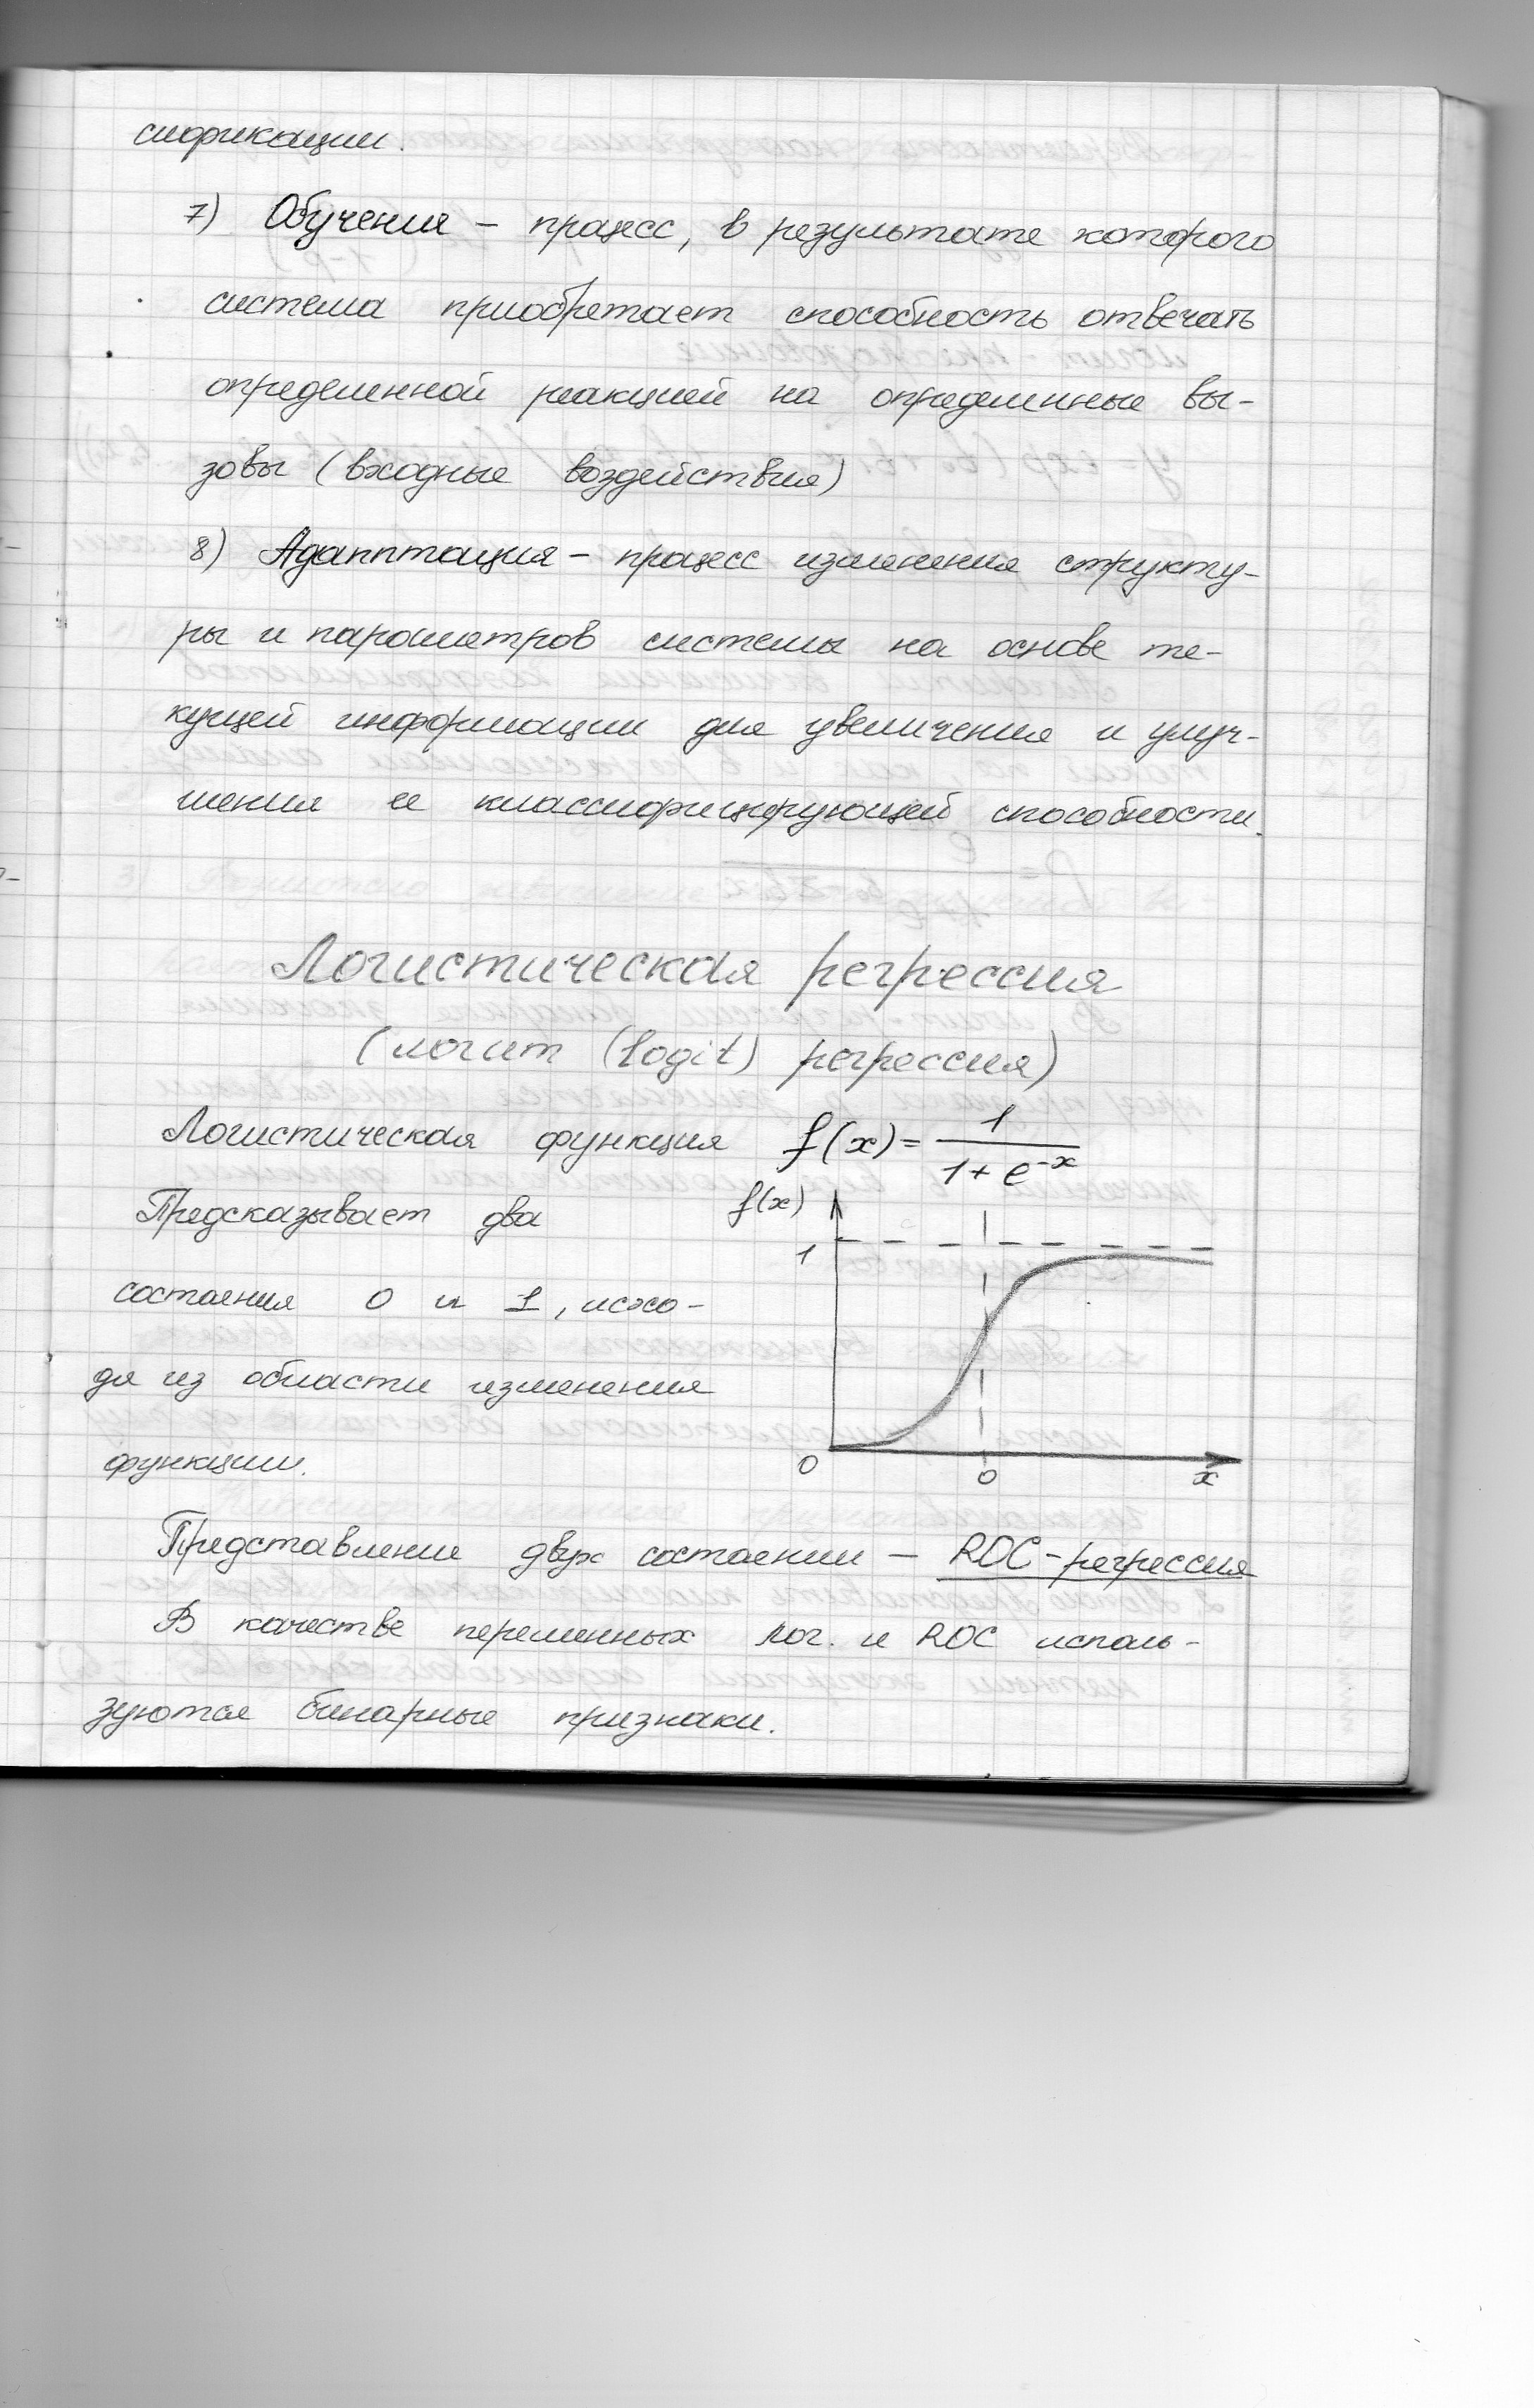 сификации.
7) Обучение – процесс, в результате которого
система приобретает способность отвечать
определенной реакцией на определенные вы-
зовы (входные воздействия)
8) Адапптация – процесс изменения структу-
ры и параметров системы на основе те-
кущей информации для увеличения и улуч-
шения ее классифицирующей способности.
Логистическая регрессия
(логит (logit) регрессия)
Логистическая функция f(x) = 1 / (1 + e^-x)
Предсказывает два
состояния 0 и 1, исхо-
дя из области изменения
функции.
f(x)
1
0
0
x
Представление двух состоянии – ROC-регрессия
В качестве переменных лог. и ROC исполь-
зуются бинарные признаки.